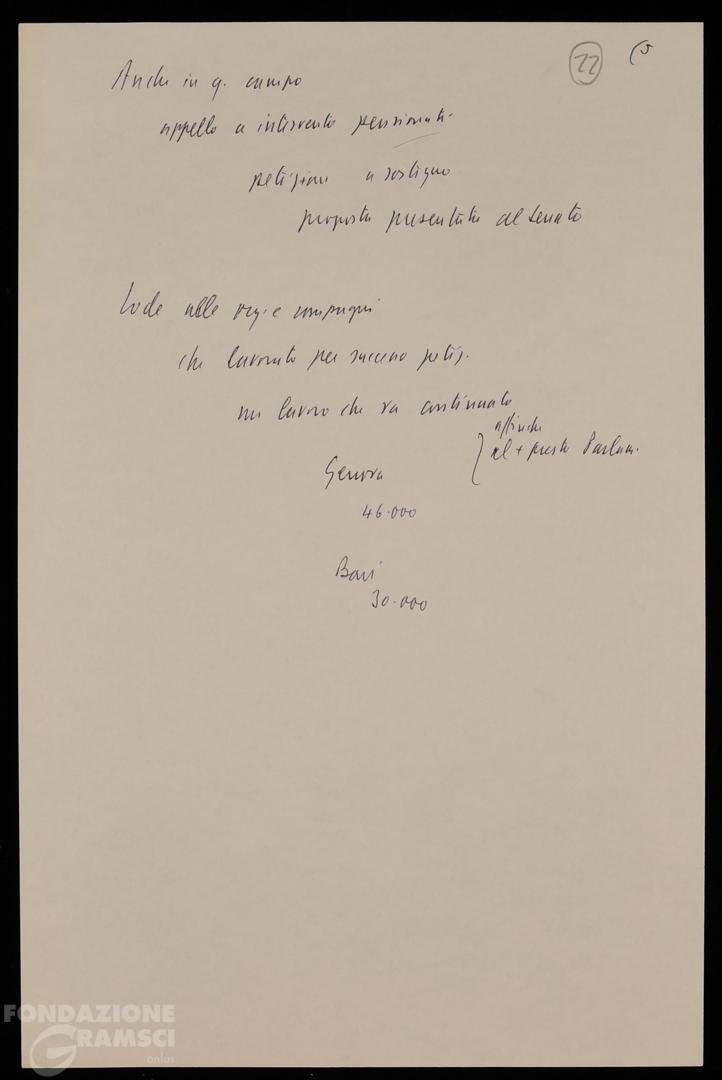 22
Anche in q. campo
appello a intervento pensionati
petizioni a sostegno
proposta presentata al Senato
Lode alle e compagni
che lavorato per successo petiz.
un lavoro che va continuato
affinché
al + presto Parlam.
Genova
46.000
Bari
30.000
FONDAZIONE
GRAMSCI
onlus